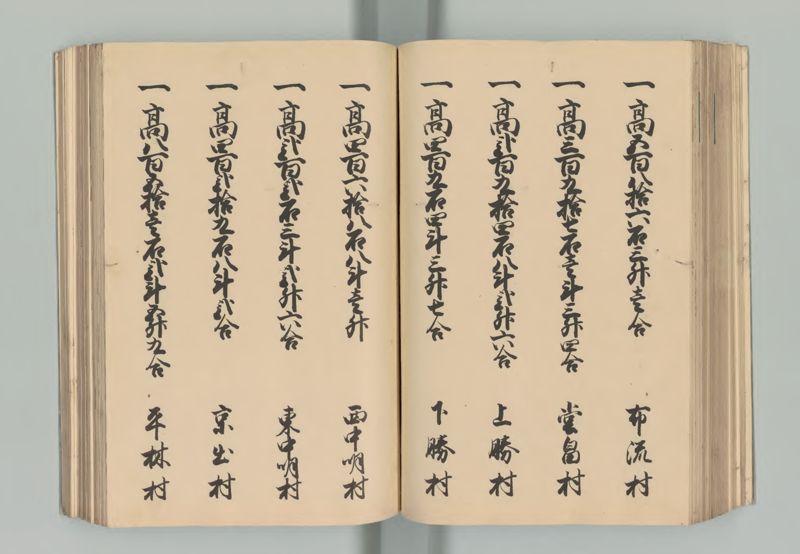 一高五百八拾六石三升壱合 布流村
一高三百九拾七石壱斗三升四合 堂畠村
一高弐百九拾四石八斗弐升六合 上勝村
一高四百九石四斗三升七合 下勝村
一高四百六拾八石八斗壱升 西中明村
一高弐百弐石三斗弐升六合 東中明村
一高四百弐拾九石八斗弐合 京出村
一高八百五拾壱石弐斗五升九合 平林村